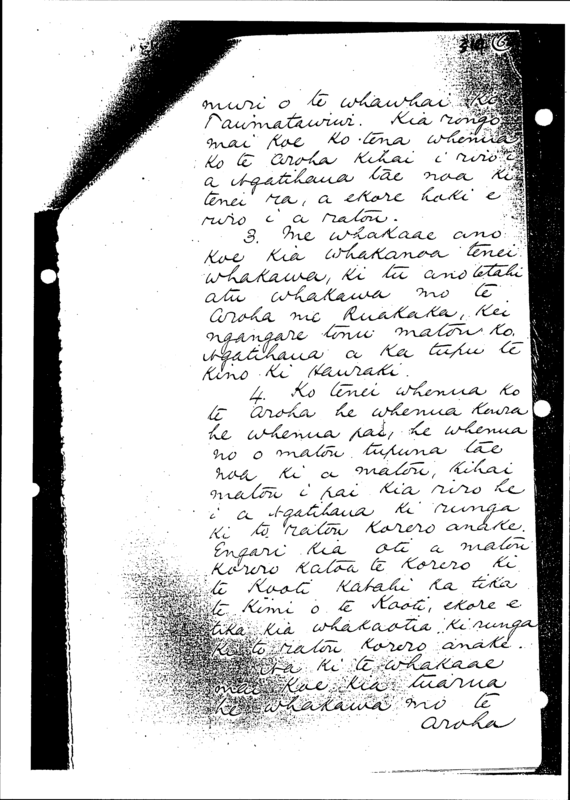 314
muri o te whawhai ki
Taumatawiwi. Kia rongo
mai koe ko tena whenua
ko te Aroha kihai i riro i
a Ngatihaua tae noa ki
tenei ra, a ekore hoki e
riro i a ratou.
3. Me whakaae ano
koe kia whakanoa tenei
whakawa, ki tu ano tetahi
atu whakawa mo te
Aroha me Ruakaka, kei
ngangare tonu matou ko
Ngatihaua a ka tupu te
kino ki Hauraki.
4. Ko tenei whenua ko
te Aroha he whenua koura
he whenua pai, he whenua
no o matou tupuna tae
noa ki a matou, kihai
matou i pai kia riro he
i a Ngatihaua ki runga
ki to ratou korero anake.
Engari kia oti a matou
korero katoa te korero ki
te Kooti katahi ka tika
te kimi o te Kooti, ekore e
tika kia whakaotia ki runga
ki to ratou korero anake.
Na ki te whakaae
mai koe kia tuarua
he whakawa mo te
Aroha